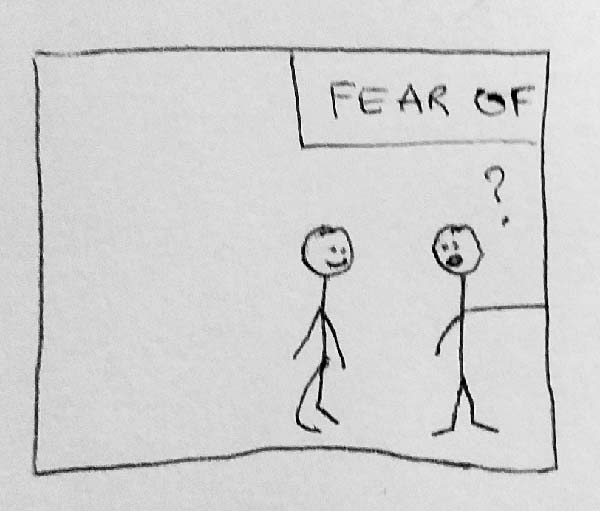 FEAR OF
?